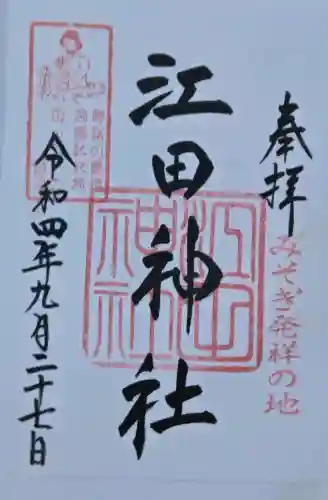 奉拝
みそぎ発祥の地
江田神社
江田神社
令和四年九月二十七日